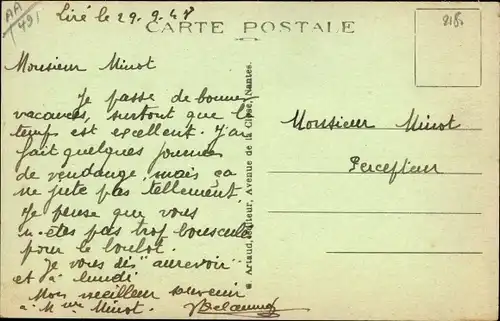 AA
491
Liré le 29.9.48
CARTE POSTALE
218.
Monsieur Minot
Je passe de bonnes
vacances, surtout que le
temps est excellent. J'ai
fait quelques journées
de vendange, mais ça
ne jute pas tellement.
Je pense que vous
n'êtes pas trop bousculé
pour le boulot.
Je vous dis "aurevoir"
et à lundi
Mon meilleur souvenir
à Mme Minot.
Artaud, Editeur, Avenue de la Close, Nantes.
Monsieur Minot
Percepteur